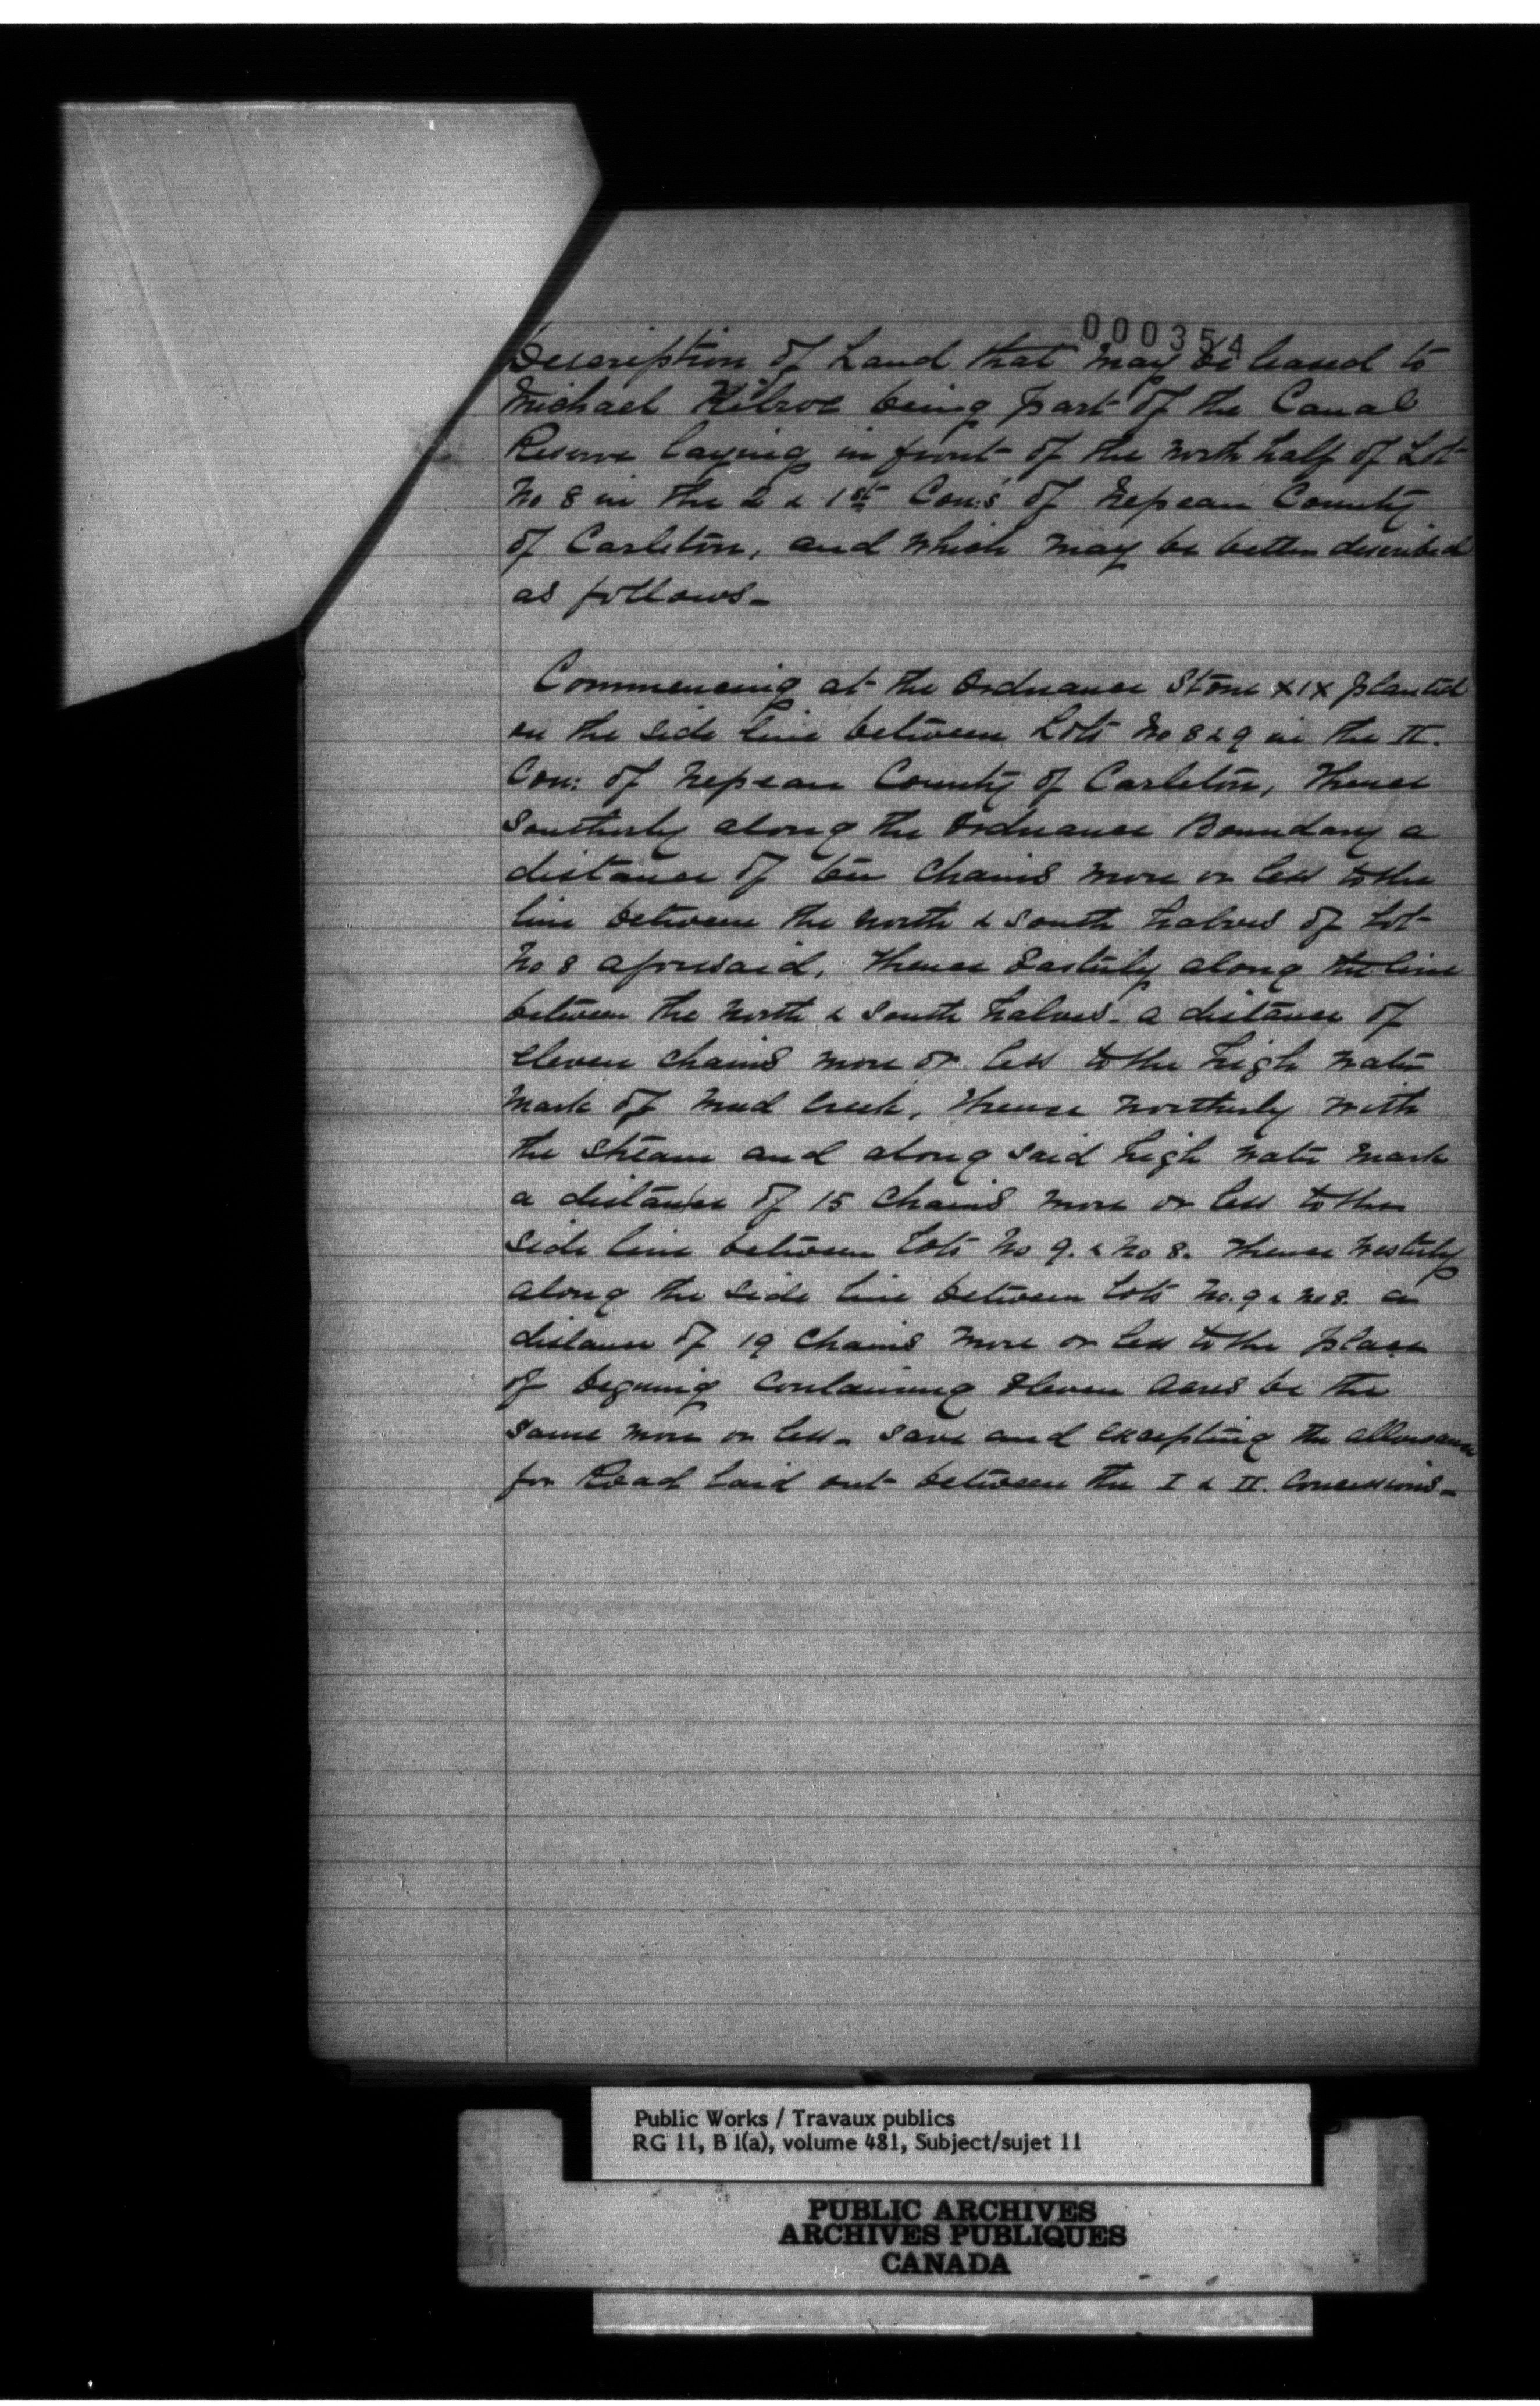 000354
Description of Land that may be leased to
Michael Kilroe being part of the Canal
Reserve laying in front of the north half of Lot
No 8 in the 2 & 1st Con:s of Nepean County
of Carleton, and which may be better described
as follows-
Commencing at the Ordnance Stone XIX planted
on the side line between Lots No 8 & 9 in the II.
Con: of Nepean County of Carleton, Thence
Southerly along the Ordnance Boundary a
distance of ten chains more or less to the
line between the north & south halves of Lot
No 8 aforesaid, Thence Easterly along the line
between the north & south halves- a distance of
eleven chains more or less to the high water
mark of Mud Creek, Thence northerly with
the stream and along said high water mark
a distance of 15 chains more or less to the
side line between Lots No 9. & No 8. Thence westerly
along the side line between Lots No. 9 & No 8. a
distance of 19 chains more or less to the place
of begining containing Eleven acres be the
same more or less- save and excepting the allowance
for Road laid out between the I & II. Concessions-
Public Works / Travaux publics
RG 11, B 1(a), volume 481, Subject/sujet 11
PUBLIC ARCHIVES
ARCHIVES PUBLIQUES
CANADA